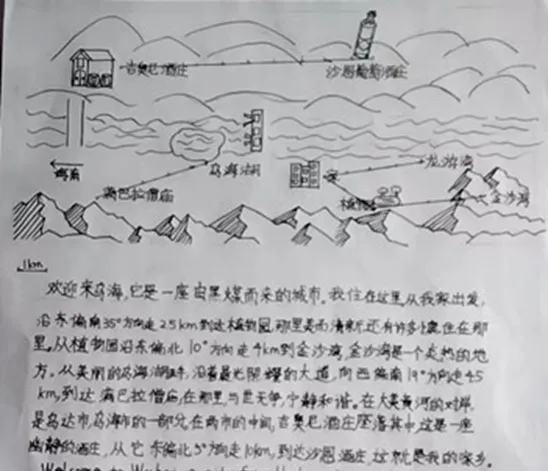 吉奥尼酒庄
沙恩葡萄酒庄
乌海湖
龙游湾
家
植物园
金沙湾
满巴拉僧庙
1km
欢迎来乌海,它是一座由黑煤而来的城市。我住在这里,从我家出发,
沿东偏南35°方向走2.5km到达植物园,那里美而清新,还有许多小鹿住在那
里,从植物园沿东偏北10°方向走4km到金沙湾,金沙湾是一个炎热的地
方。从美丽的乌海湖畔,沿着晨光照耀的大道,向西偏南19°方向走4.5
km,到达满巴拉僧庙,在那里与世无争,宁静和谐。在大美黄河的对岸,
是乌达市,乌海市的一部分,在两市的中间,吉奥尼酒庄座落其中,这是一座
幽静的酒庄,从它东偏北5°方向走10km,到达沙恩酒庄,这就是我的家乡。
Welcome to Wuhai